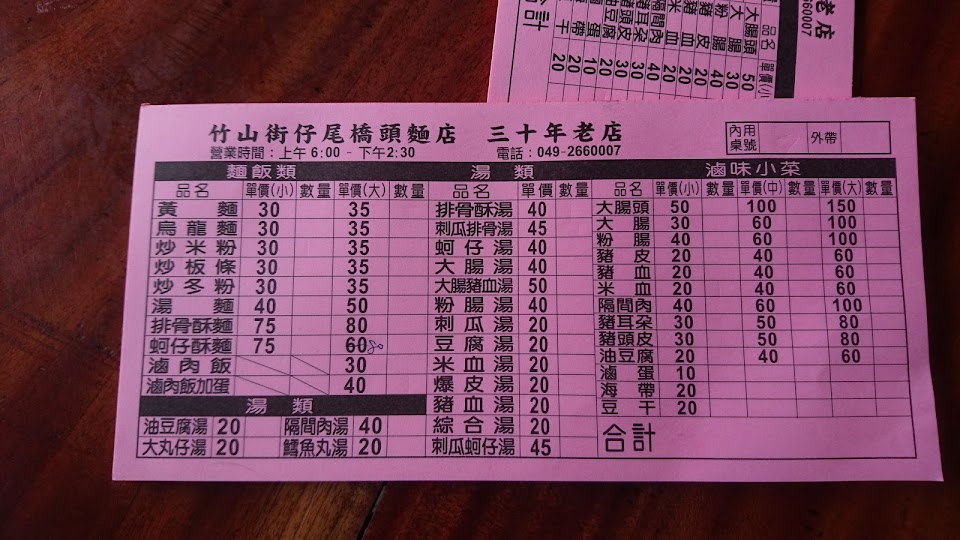 竹山街仔尾橋頭麵店 三十年老店
營業時間:上午 6:00 - 下午2:30 電話:049-2660007
內用桌號 外帶
麵飯類
品名 單價(小) 數量 單價(大) 數量
黃麵 30 35
烏龍麵 30 35
炒米粉 30 35
炒板條 30 35
炒冬粉 30 35
湯麵 40 50
排骨酥麵 75 80
蚵仔酥麵 75 60 80
滷肉飯 30
滷肉飯加蛋 40
湯類
油豆腐湯 20 隔間肉湯 40
大丸仔湯 20 鱈魚丸湯 20
湯類
品名 單價 數量
排骨酥湯 40
刺瓜排骨湯 45
蚵仔湯 40
大腸湯 40
大腸豬血湯 50
粉腸湯 40
刺瓜湯 20
豆腐湯 20
米血湯 20
爆皮湯 20
豬血湯 20
綜合湯 20
刺瓜蚵仔湯 45
滷味小菜
品名 單價(小) 數量 單價(中) 數量 單價(大) 數量
大腸頭 50 100 150
大腸 30 60 100
粉腸 40 60 100
豬皮 20 40 60
豬血 20 40 60
米血 20 40 60
隔間肉 40 60 100
豬耳朶 30 50 80
豬頭皮 30 50 80
油豆腐 20 40 60
滷蛋 10
海帶 20
豆干 20
合計
老店
60007
品名 單價(小)
大腸頭 50
大腸 30
粉腸 40
豬皮 20
豬血 20
米血 20
隔間肉 40
豬耳朶 30
豬頭皮 30
油豆腐 20
滷蛋 10
海帶 20
豆干 20
合計